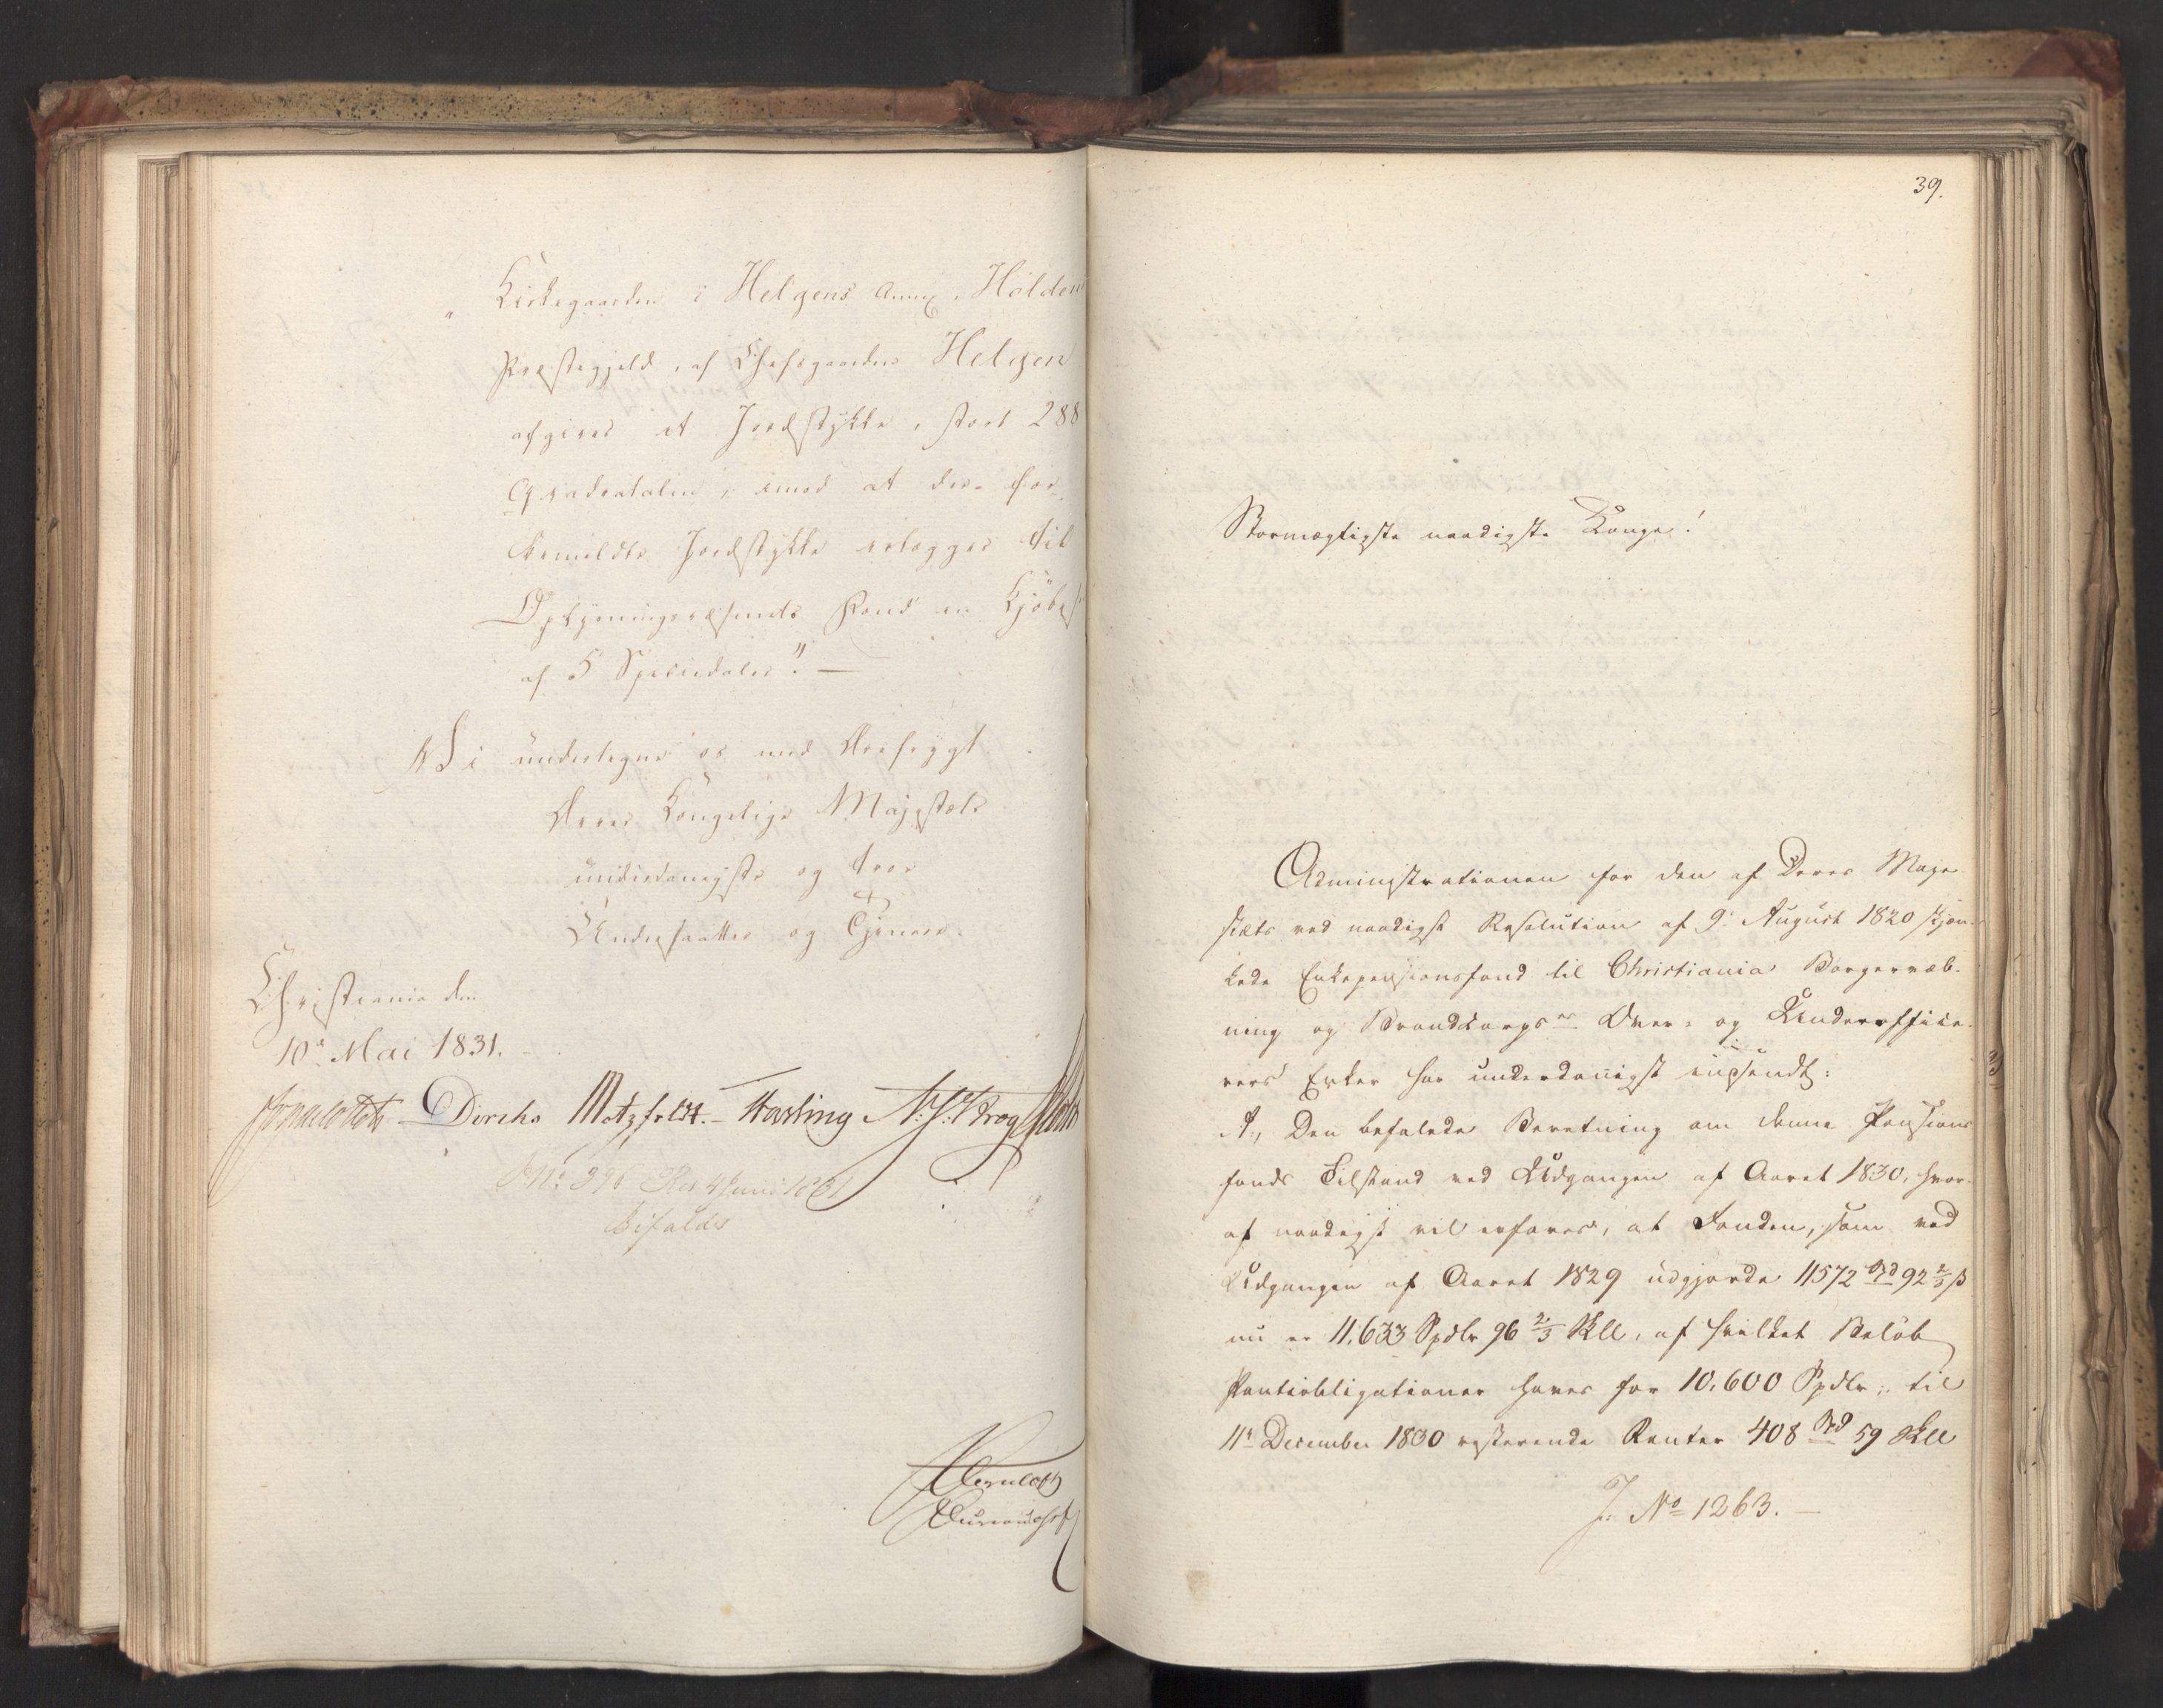 „ Kirkegaarden i Helgens Annex, Holdens
Præstegjeld, af Chefsgaarden Helgen
afgives et Jordstykke, stort 288
Qvadratalen, imod at der for
bemeldte Jordstykke erlægges til
Oplysningsvæsenets Fond en Kjøbes
af 5 Speciedaler." —
Vi undertegne os med Ærefrygt
Deres Kongelige Majestæts
underdanigste og troe
Undersaatter og Tjenere.
Christiania den
10de Mai 1831.
Diriks Motzfeldt. Hasling N. J. Krog
No: 390 Res 4 Juni 1831
bifaldes
39.
Stormægtigste naadigste Konge!
Administrationen for den af Deres Maje
stæts ved naadigst Resolution af 9. August 1820 skjæn-
kede Enkepensionsfond til Christiania Borgervæb-
ning og Brandcorpses Over- og Underoffice-
rers Enker har underdanigst indsendt:
A., Den befalede Beretning om denne Pensions
fonds Tilstand ved Udgangen af Aaret 1830, hvor-
af naadigst vil erfares, at Fonden, som ved
Udgangen af Aaret 1829 udgjorde 11572 Spd 92 2/3 ß
nu er 11,633 Spdlr 96 2/3 Skll, af hvilket Beløb
Pantobligationer haves for 10,600 Spdlr; til
11te December 1830 resterende Renter 408 Spd 59 Skll
J: No 1263. —